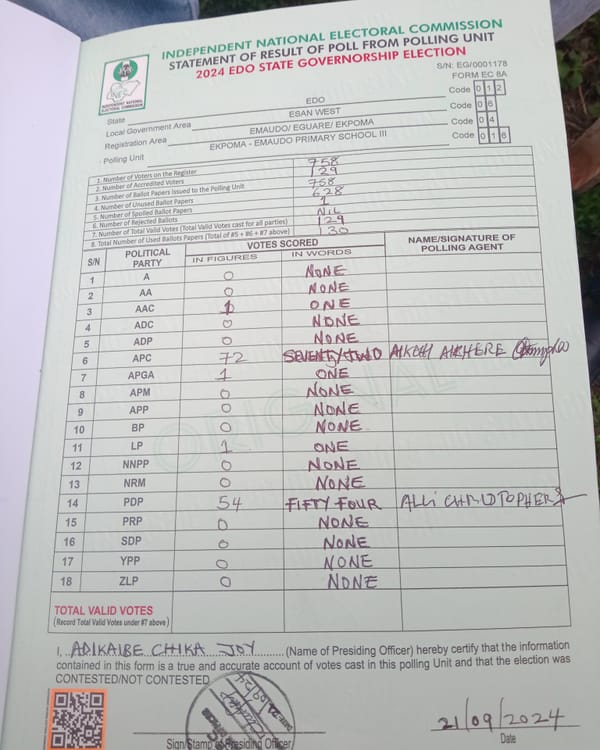 INDEPENDENT NATIONAL ELECTORAL COMMISSION
STATEMENT OF RESULT OF POLL FROM POLLING UNIT
2024 EDO STATE GOVERNORSHIP ELECTION
S/N: EG/0001178
FORM EC 8A
INDEPENDENT NATIONAL ELECTORAL COMMISSION
State EDO Code 0 1 2
Local Government Area ESAN WEST Code 0 6
Registration Area EMAUDO/ EGUARE/ EKPOMA Code 0 4
Polling Unit EKPOMA - EMAUDO PRIMARY SCHOOL III Code 0 1 6
1. Number of Voters on the Register 758
2. Number of Accredited Voters 129
3. Number of Ballot Papers Issued to the Polling Unit 758
4. Number of Unused Ballot Papers 628
5. Number of Spoiled Ballot Papers 1
6. Number of Rejected Ballots NIL
7. Number of Total Valid Votes (Total Valid Votes cast for all parties) 129
8. Total Number of Used Ballots Papers (Total of #5 + #6 + #7 above) 130
S/N POLITICAL PARTY VOTES SCORED NAME/SIGNATURE OF POLLING AGENT
IN FIGURES IN WORDS
1 A 0 NONE
2 AA 0 NONE
3 AAC 1 ONE
4 ADC 0 NONE
5 ADP 0 NONE
6 APC 72 SEVENTY TWO
7 APGA 1 ONE
8 APM 0 NONE
9 APP 0 NONE
10 BP 0 NONE
11 LP 1 ONE
12 NNPP 0 NONE
13 NRM 0 NONE
14 PDP 54 FIFTY FOUR ALLI CHRISTOPHER
15 PRP 0 NONE
16 SDP 0 NONE
17 YPP 0 NONE
18 ZLP 0 NONE
TOTAL VALID VOTES
(Record Total Valid Votes under #7 above)
ORIGINAL
I, ADIKAIBE CHIKA JOY (Name of Presiding Officer) hereby certify that the information
contained in this form is a true and accurate account of votes cast in this polling Unit and that the election was
CONTESTED/NOT CONTESTED
Sign/Stamp of Presiding Officer
21/09/2024
Date